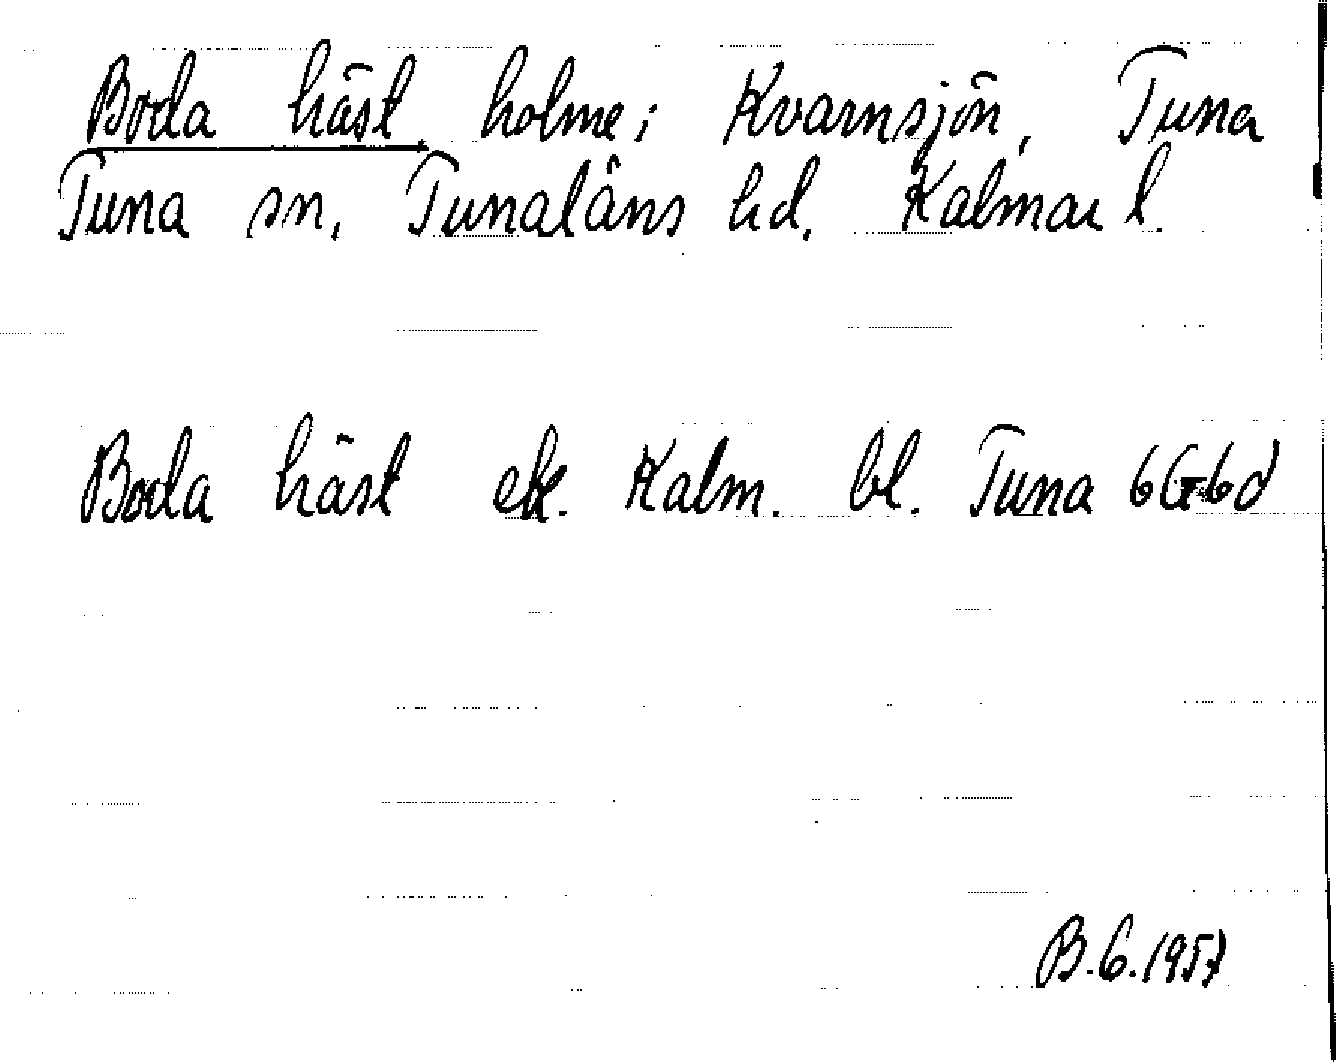 Boda häst, holme i Kvarnsjön, Tuna
Tuna sn, Tunaläns hd, Kalmar l.
Boda häst ek. Kalm. bl. Tuna 6G6d
B.G. 1957